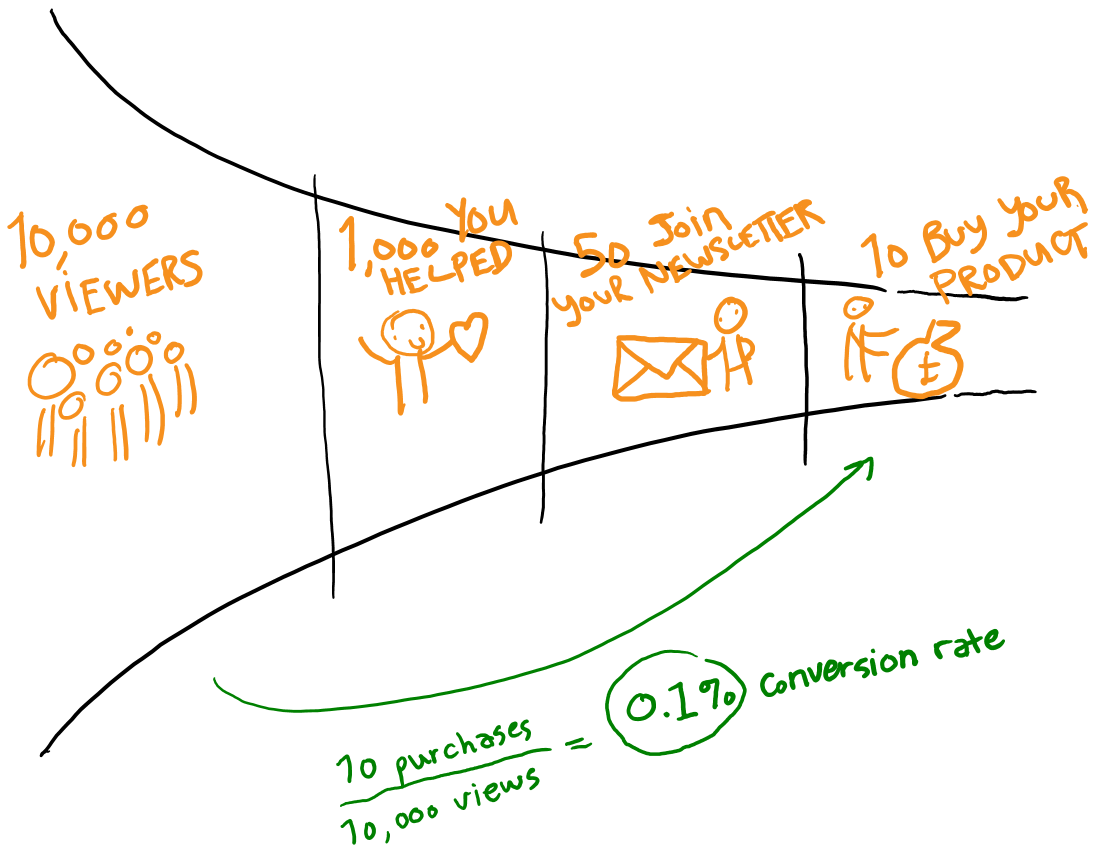 10,000
VIEWERS
1,000 YOU
HELPED
50 JOIN
YOUR NEWSLETTER
10 BUY YOUR
PRODUCT
10 purchases
10,000 views
= 0.1% conversion rate